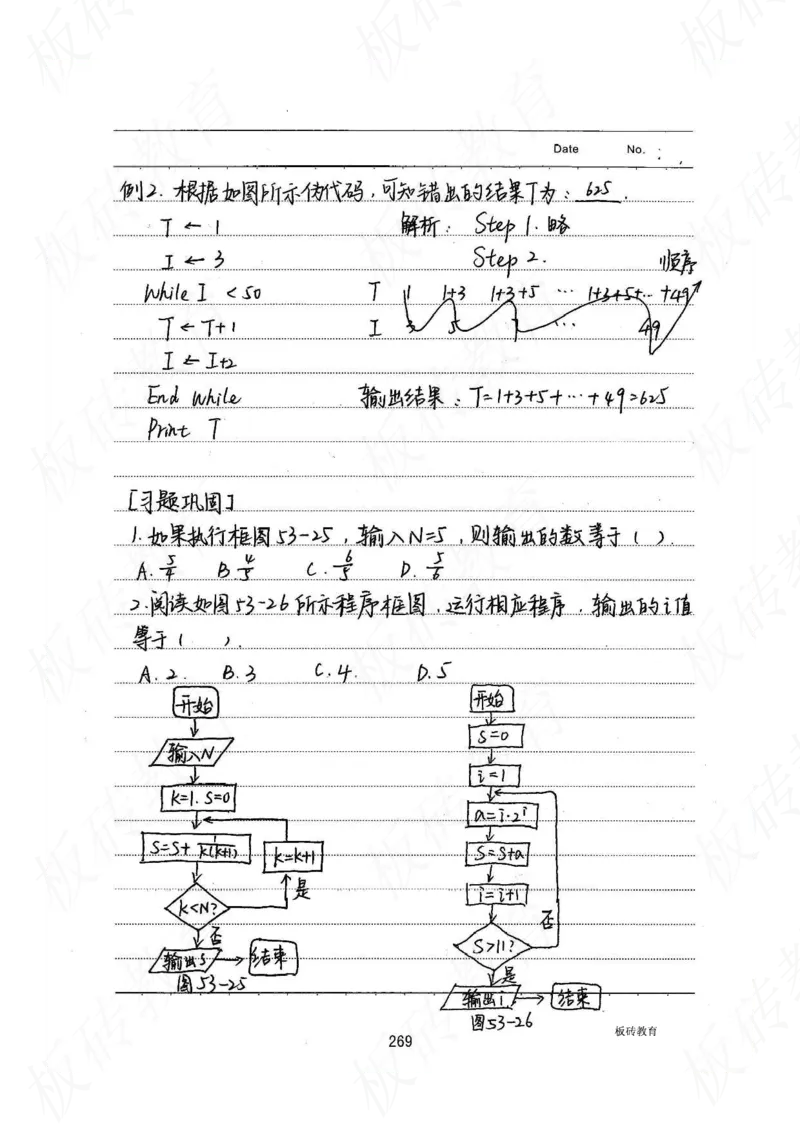 Date No.
例2. 根据如图所示伪代码,可知错出的结果T为: 625.
T ← 1 解析: Step 1. 略
I ← 3 Step 2. 顺序
While I < 50 T 1 1+3 1+3+5 … 1+3+5+…+49
T ← T+1 I 3 5 7 … 49
I ← I+2
End While 输出结果: T=1+3+5+…+49=625
Print T
[习题巩固]
1. 如果执行框图53-25,输入N=5,则输出的数等于( ).
A. 5/4 B. 4/5 C. 6/5 D. 5/6
2. 阅读如图53-26所示程序框图,运行相应程序,输出的i值
等于( ).
A. 2. B. 3 C. 4. D. 5
开始
输入N
k=1. S=0
S=S+ 1/k(k+1)
k=k+1
k<N?
是
否
输出S
结束
图53-25
开始
S=0
i=1
a=i·2^i
S=S+a
i=i+1
否
S>11?
是
输出i
结束
图53-26
板砖教育
269